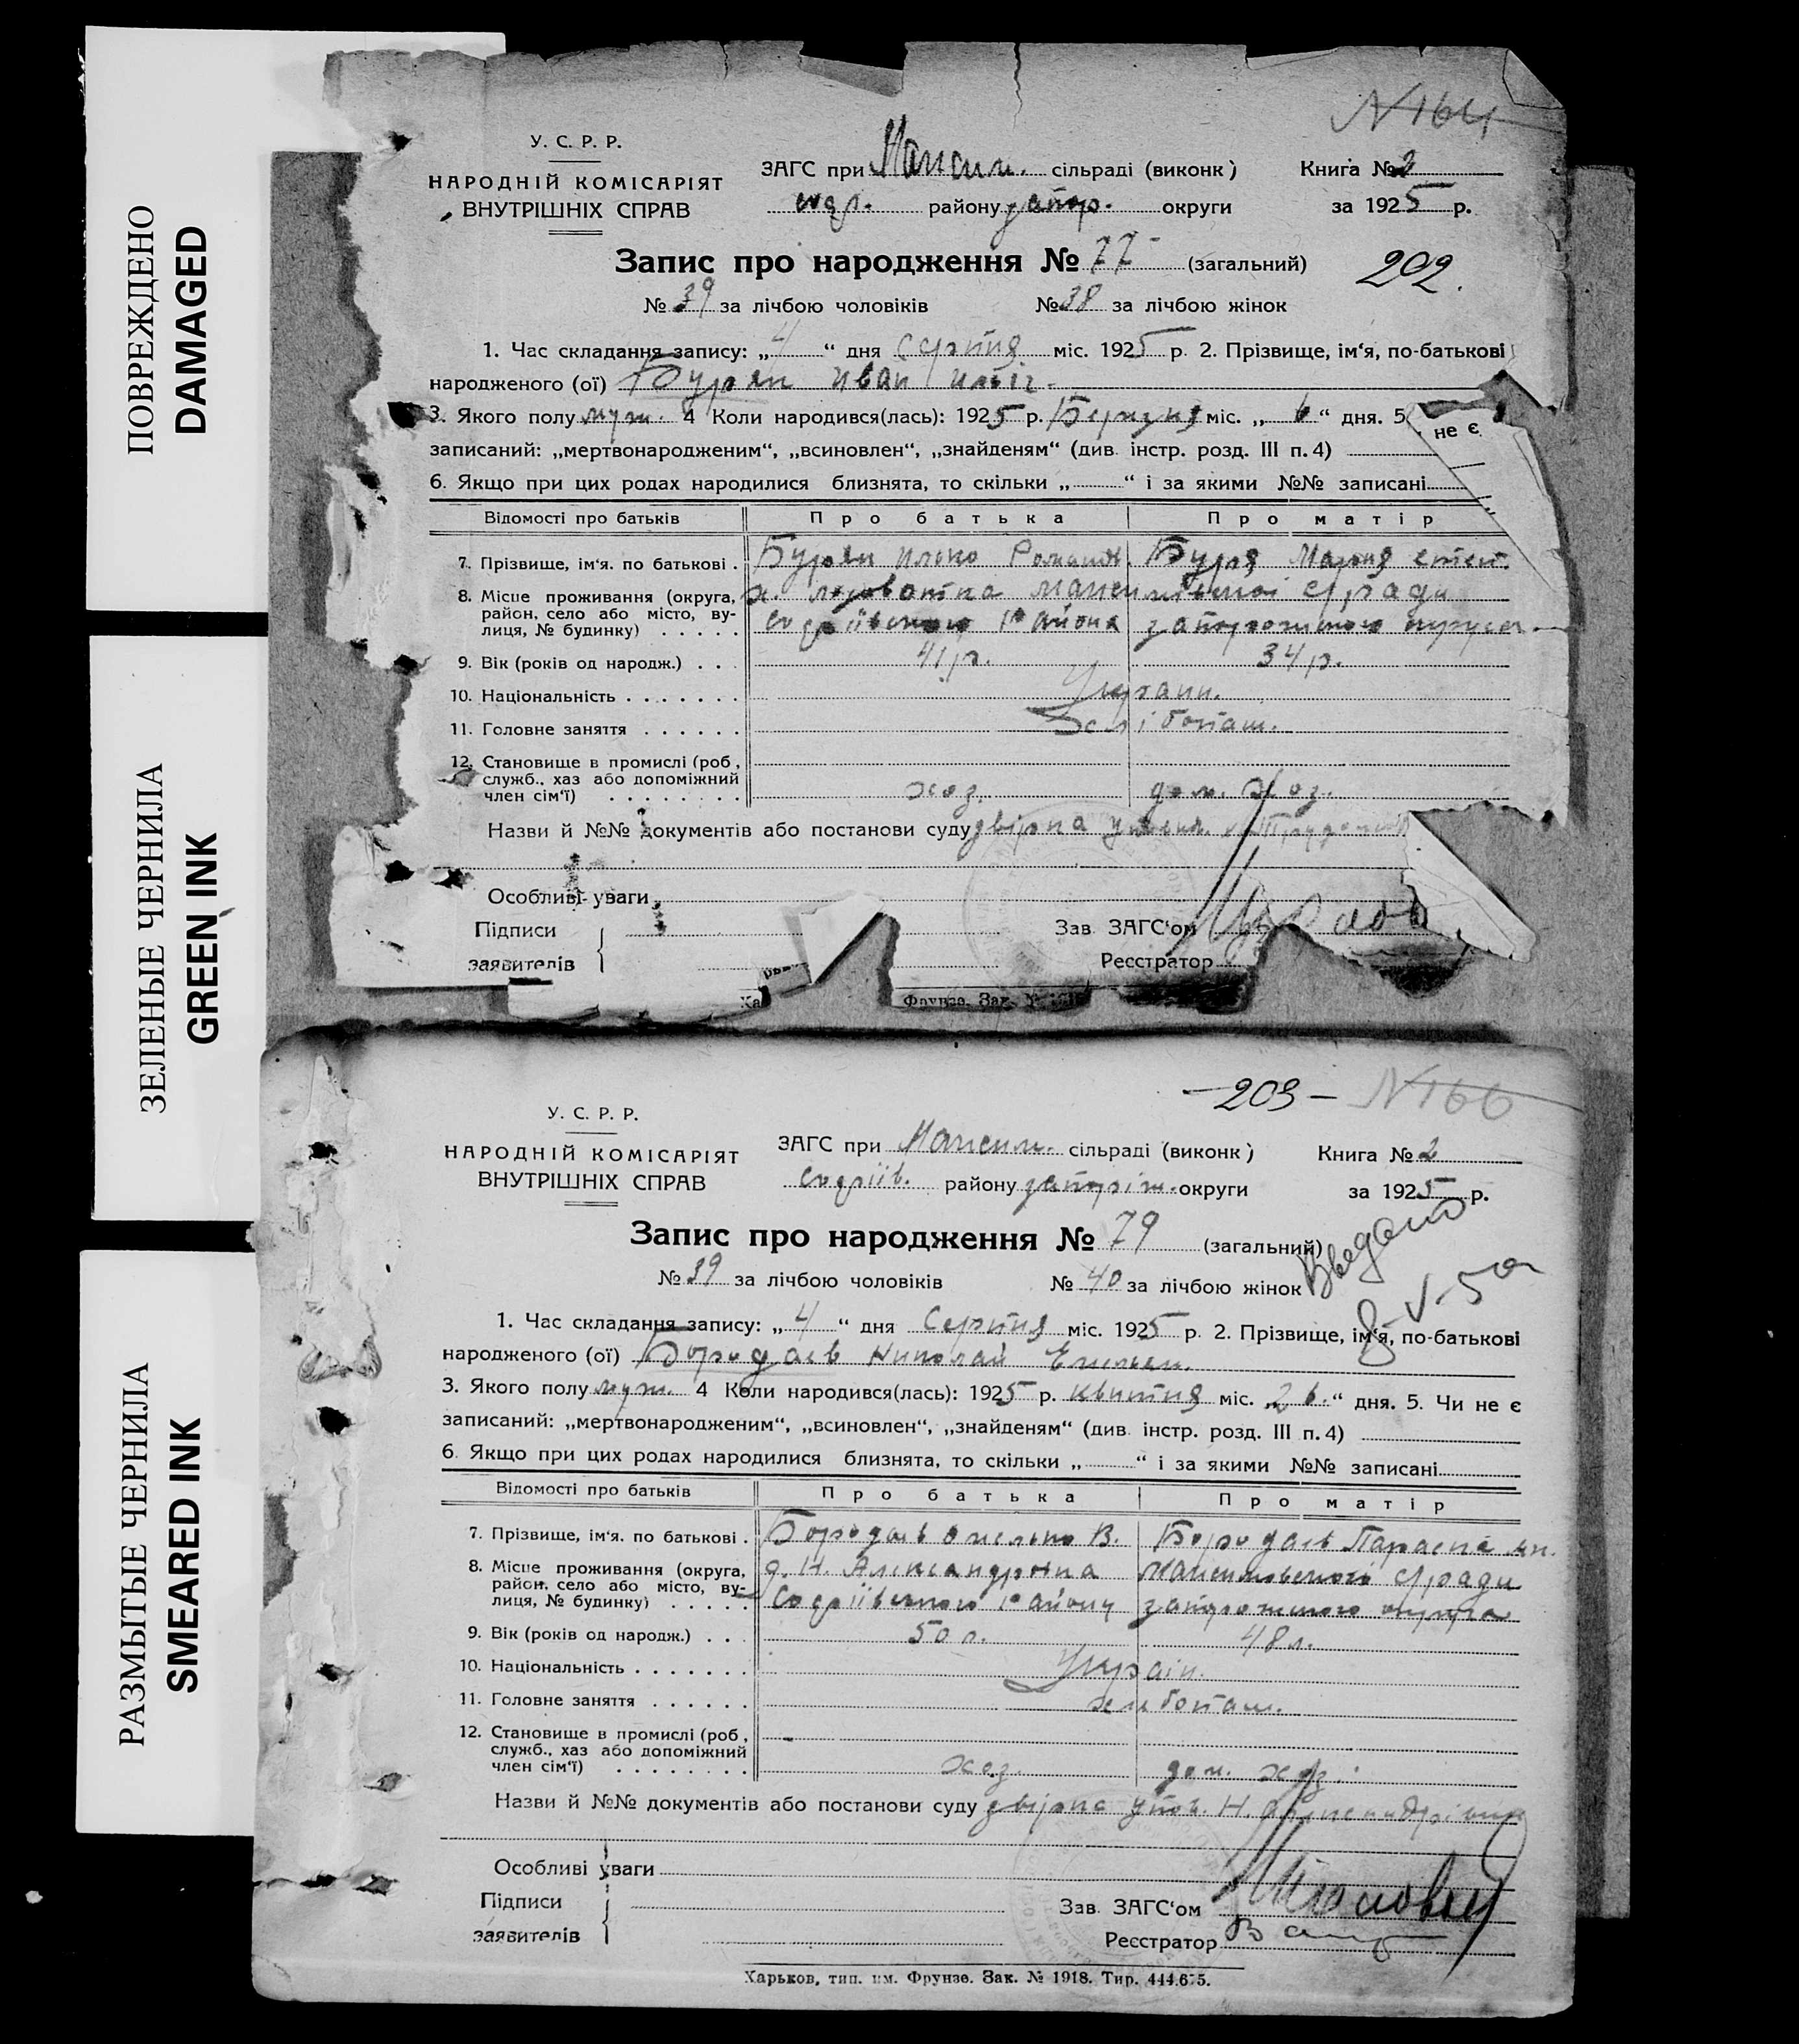 ПОВРЕЖДЕНО
DAMAGED
ЗЕЛЕНЫЕ ЧЕРНИЛА
GREEN INK
РАЗМЫТЫЕ ЧЕРНИЛА
SMEARED INK
N 164
У. С. Р. Р.
НАРОДНІЙ КОМІСАРІЯТ
ВНУТРІШНІХ СПРАВ
ЗАГС при Максим. сільраді (виконк)
району запор. округи
Книга № 2
за 1925 р.
Запис про народження № 77 (загальний)
202.
№ 39 за лічбою чоловіків № 38 за лічбою жінок
1. Час складання запису: „ 4 “ дня Серпня міс. 1925 р. 2. Прізвище, ім‘я, по-батькові
народженого (ої) Бурян Иван Ильіч
3. Якого полу муж. 4 Коли народився(лась): 1925 р. Березня міс. „ 6 “ дня. 5
не є
записаний: „мертвонародженим“, „всиновлен“, „знайденям“ (див. інстр. розд. III п. 4)
6. Якщо при цих родах народилися близнята, то скільки „ “ і за якими №№ записані
Відомості про батьків Про батька Про матір
7. Прізвище, ім‘я. по батькові . Бурян Илько Романов. Буря Мария Степ.
8. Місце проживання (округа, район, село або місто, вулиця, № будинку) . . . . . х. Максимівської С/ради
Софіївського района запорожського округа
9. Вік (років од народж.) . . . 41 р. 34 р.
10. Національність . . . . . . . Украин.
11. Головне заняття . . . . . . Хлібопаш.
12. Становище в промислі (роб, служб., хаз або допоміжний член сім‘ї) . . . . . . . . хоз. дом. хоз.
Назви й №№ документів або постанови суду двірка
Особливі уваги
Підписи
заявителів
Зав. ЗАГС‘ом
Реєстратор
Фрунзе. Зак. №
- 203 - N 166
У. С. Р. Р.
НАРОДНІЙ КОМІСАРІЯТ
ВНУТРІШНІХ СПРАВ
ЗАГС при Максим. сільраді (виконк)
Софіїв. району запоріж. округи
Книга № 2
за 1925 р.
Запис про народження № 79 (загальний)
№ 39 за лічбою чоловіків № 40 за лічбою жінок
1. Час складання запису: „ 4 “ дня Серпня міс. 1925 р. 2. Прізвище, ім‘я, по-батькові
народженого (ої) Бородаєв Николай Емельян.
3. Якого полу муж. 4 Коли народився(лась): 1925 р. квитня міс. „ 26. “ дня. 5. Чи не є
записаний: „мертвонародженим“, „всиновлен“, „знайденям“ (див. інстр. розд. III п. 4)
6. Якщо при цих родах народилися близнята, то скільки „ “ і за якими №№ записані
Відомості про батьків Про батька Про матір
7. Прізвище, ім‘я. по батькові . Бородаєв Омелько В. Бородаєв Параска
8. Місце проживання (округа, район, село або місто, вулиця, № будинку) . . . . . д. Н. Александровка Максимовского С/ради
Софіївського району запорожського округа
9. Вік (років од народж.) . . . 50 л. 48 л.
10. Національність . . . . . . . Україн.
11. Головне заняття . . . . . . хлибопаш.
12. Становище в промислі (роб, служб., хаз або допоміжний член сім‘ї) . . . . . . . . хоз. дом. хоз.
Назви й №№ документів або постанови суду двірка упов. Н.
Особливі уваги
Підписи
заявителів
Зав. ЗАГС‘ом
Реєстратор
Харьков, тип. им. Фрунзе. Зак. № 1918. Тир. 444.675.